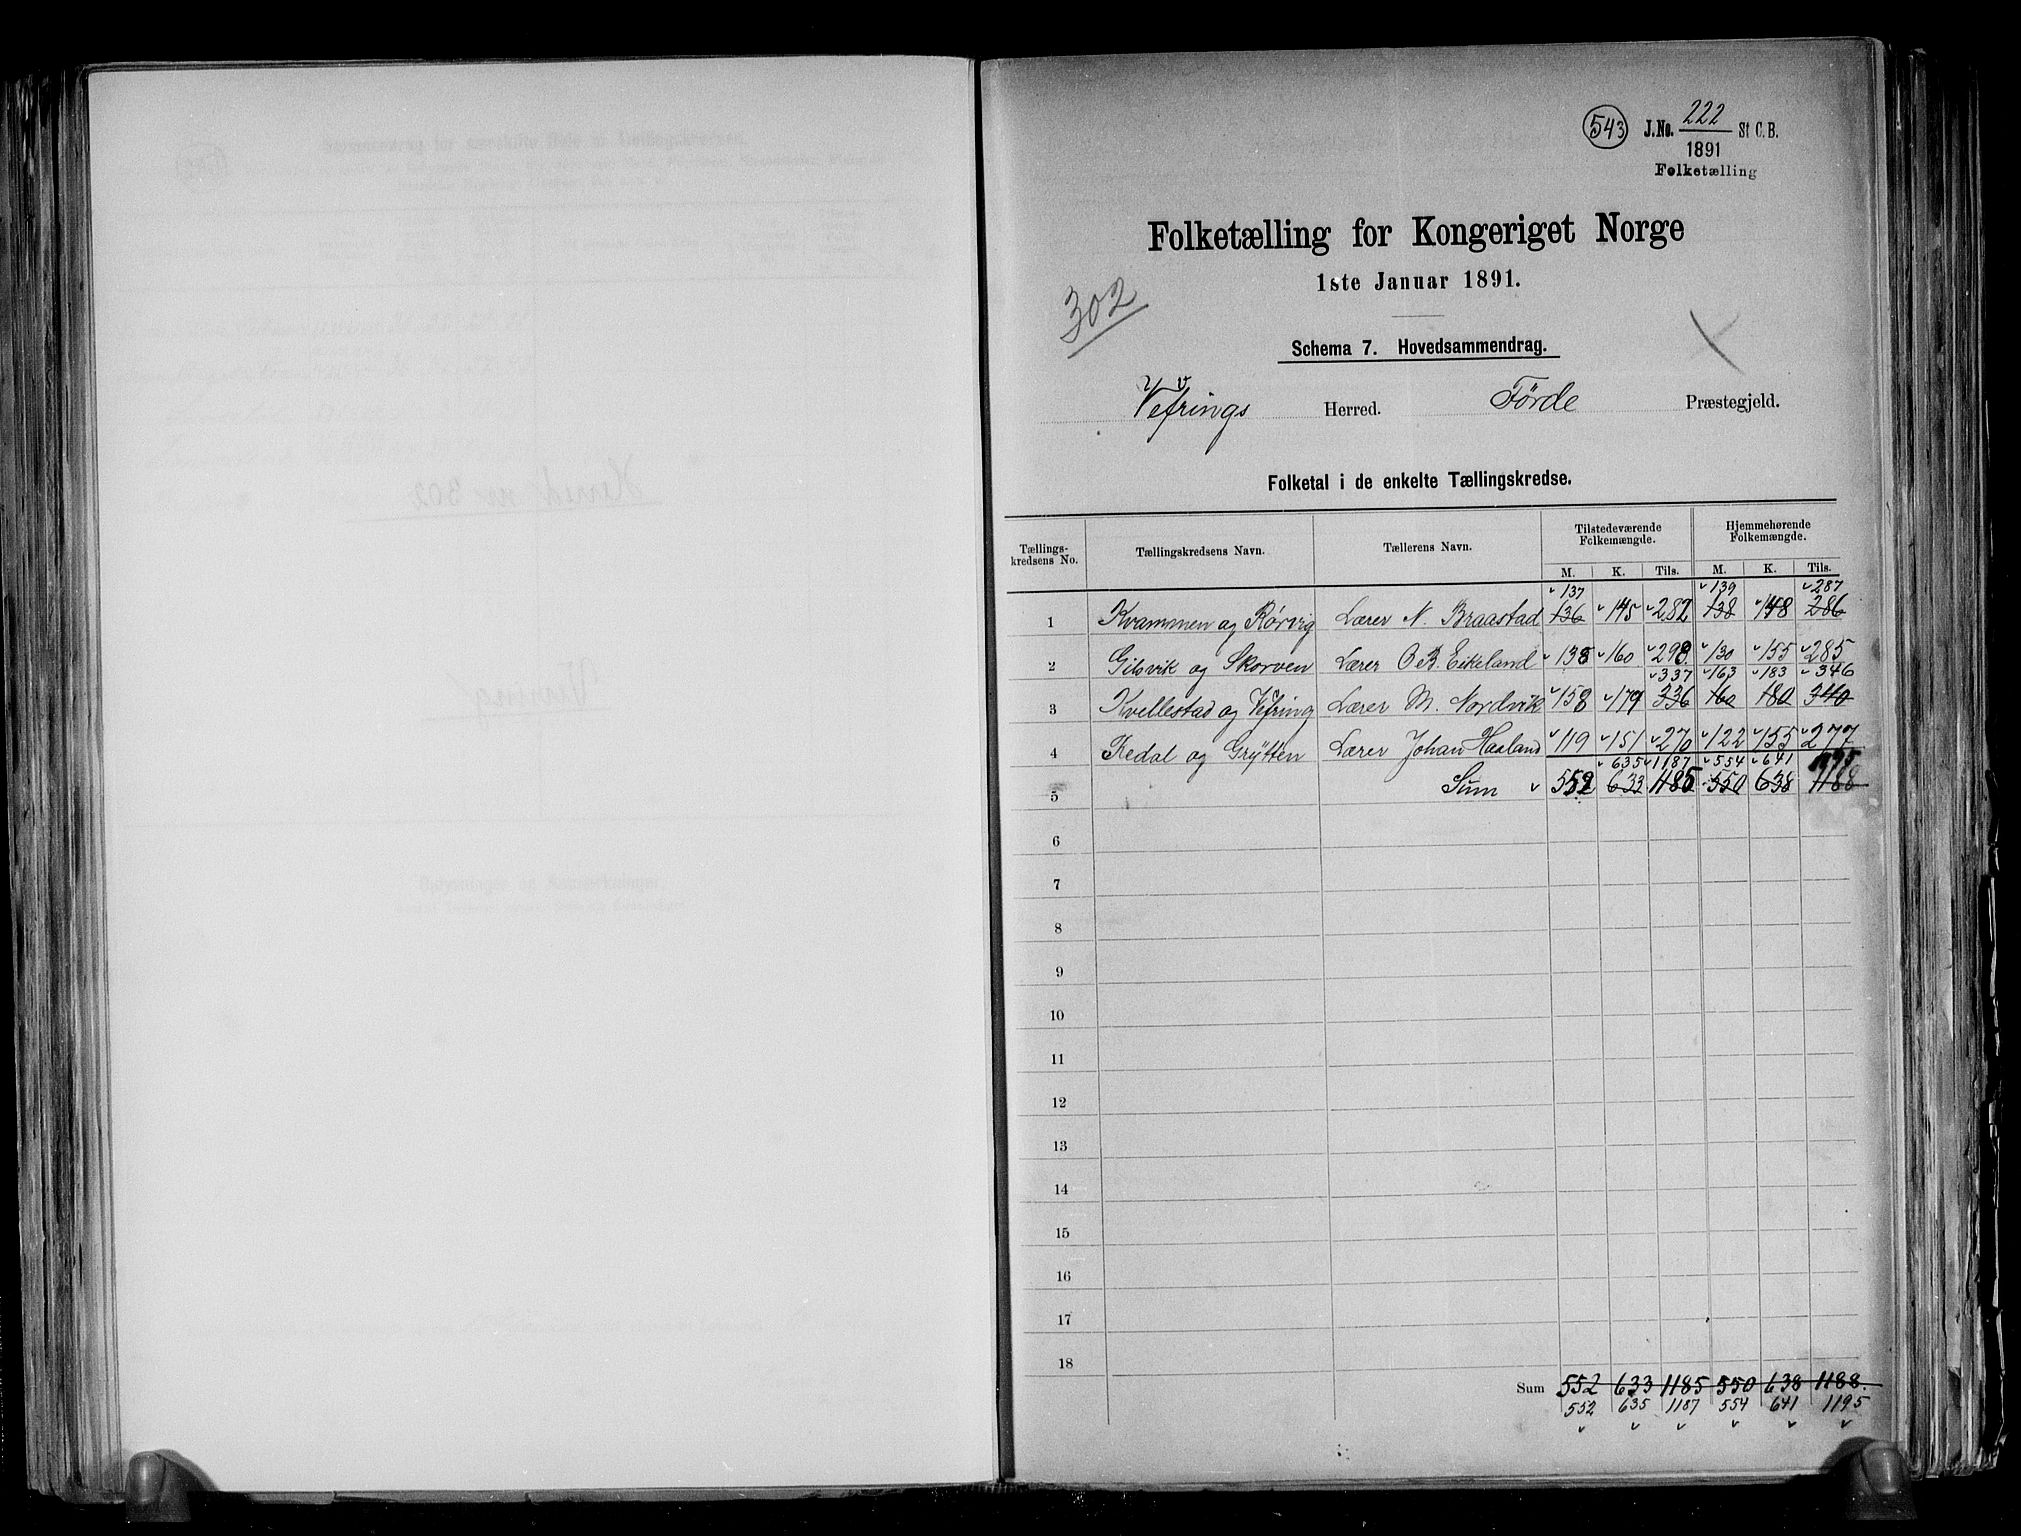 543 J.No. 222 St C. B.
1891
Folketælling
Folketælling for Kongeriget Norge
1ste Januar 1891.
302
Schema 7. Hovedsammendrag.
Vefrings Herred. Førde Præstegjeld.
Folketal i de enkelte Tællingskredse.
Tællings-kredsens No. Tællingskredsens Navn. Tællerens Navn. Tilstedeværende Folkemængde. Hjemmehørende Folkemængde.
M. K. Tils. M. K. Tils.
137 139 287
1 Kvammen og Rørvig Lærer N. Braastad 136 145 282 138 148 286
2 Gilsvik og Skorven Lærer O. B. Eikeland 138 160 298 130 155 285
337 163 183 346
3 Kvellestad og Vefring Lærer M. Nordvik 158 179 336 160 180 340
4 Redal og Grytten Lærer Johan Haaland 119 151 270 122 155 277
635 1187 554 641 1195
5 Sum 552 633 1185 550 638 1188
6
7
8
9
10
11
12
13
14
15
16
17
18
Sum 552 633 1185 550 638 1188.
552 635 1187 554 641 1195
Herred nr 302
Vevring